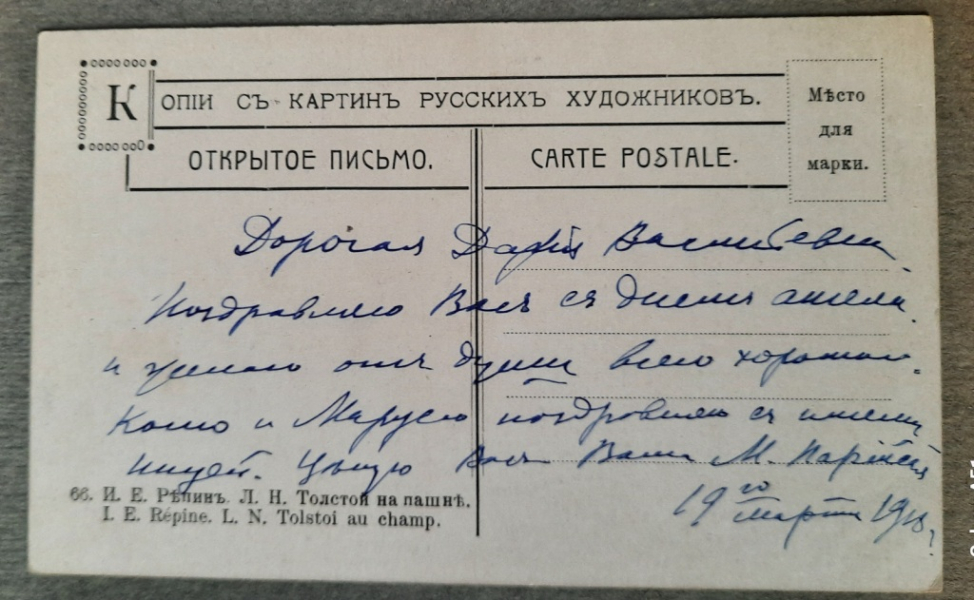 КОПІИ СЪ КАРТИНЪ РУССКИХЪ ХУДОЖНИКОВЪ.
Мѣсто
для
марки.
ОТКРЫТОЕ ПИСЬМО.
CARTE POSTALE.
Дорогая Дарья Васильевна
Поздравляю Васъ съ днемъ ангела
и желаю отъ души всего хорошаго.
Колю и Марусю поздравляю съ имени
ницей. Цѣлую Васъ Ваша М.
19го марта
66. И. Е. Рѣпинъ. Л. Н. Толстой на пашнѣ.
I. E. Répine. L. N. Tolstoi au champ.